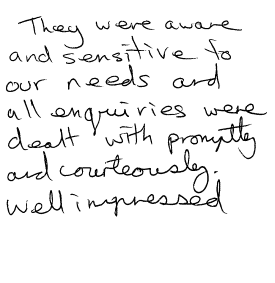 They were aware
and sensitive to
our needs and
all enquiries were
dealt with promptly
and courteously.
Well impressed